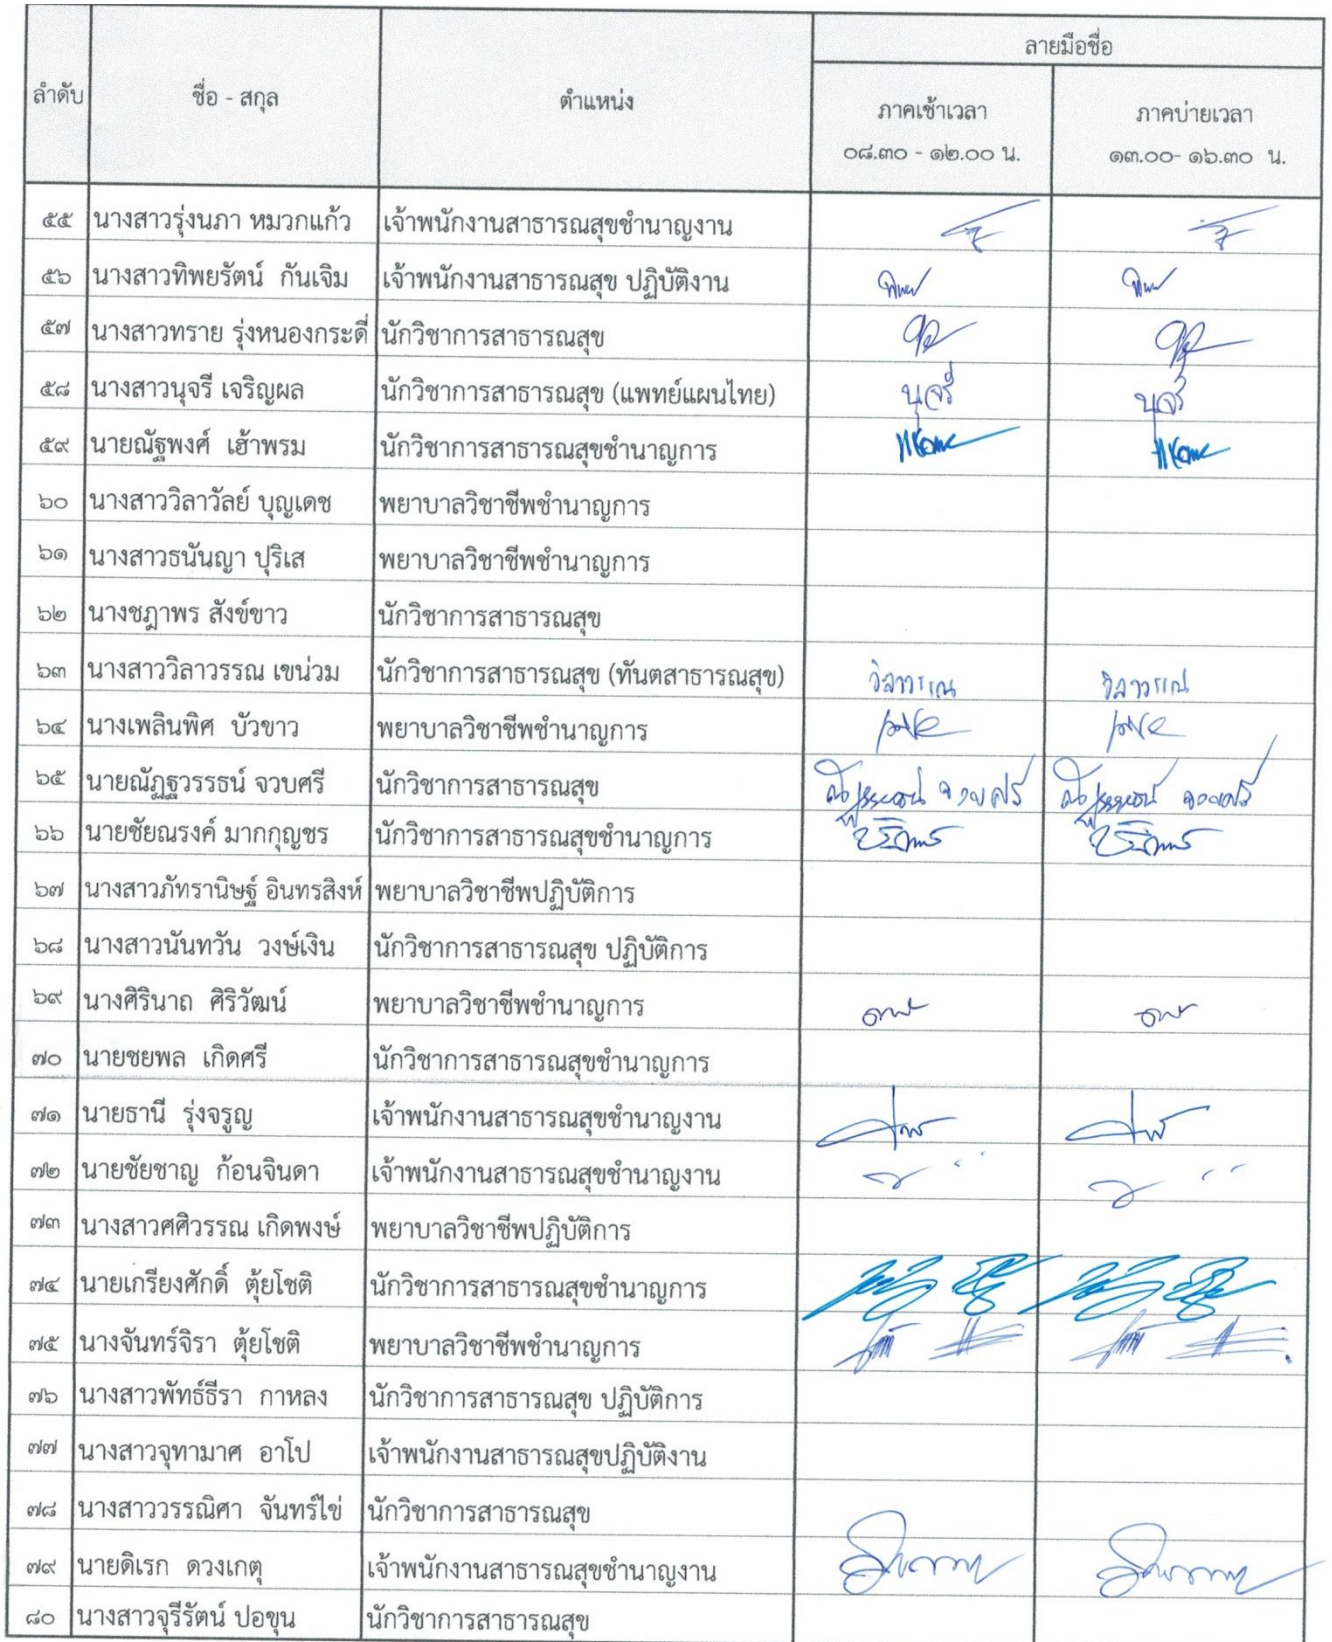 ลำดับ ชื่อ - สกุล ตำแหน่ง ลายมือชื่อ
ภาคเช้าเวลา ภาคบ่ายเวลา
๐๘.๓๐ - ๑๒.๐๐ น. ๑๓.๐๐- ๑๖.๓๐ น.
๕๕ นางสาวรุ่งนภา หมวกแก้ว เจ้าพนักงานสาธารณสุขชำนาญงาน
๕๖ นางสาวทิพยรัตน์ กันเจิม เจ้าพนักงานสาธารณสุข ปฏิบัติงาน
๕๗ นางสาวทราย รุ่งหนองกระดี่ นักวิชาการสาธารณสุข
๕๘ นางสาวนุจรี เจริญผล นักวิชาการสาธารณสุข (แพทย์แผนไทย) นุจรี นุจรี
๕๙ นายณัฐพงศ์ เฮ้าพรม นักวิชาการสาธารณสุขชำนาญการ
๖๐ นางสาววิลาวัลย์ บุญเดช พยาบาลวิชาชีพชำนาญการ
๖๑ นางสาวธนันญา ปุริเส พยาบาลวิชาชีพชำนาญการ
๖๒ นางชฎาพร สังข์ขาว นักวิชาการสาธารณสุข
๖๓ นางสาววิลาวรรณ เขน่วม นักวิชาการสาธารณสุข (ทันตสาธารณสุข) วิลาวรรณ วิลาวรรณ
๖๔ นางเพลินพิศ บัวขาว พยาบาลวิชาชีพชำนาญการ
๖๕ นายณัฏฐวรรธน์ จวบศรี นักวิชาการสาธารณสุข ณัฏฐวรรธน์ จวบศรี ณัฏฐวรรธน์ จวบศรี
๖๖ นายชัยณรงค์ มากกุญชร นักวิชาการสาธารณสุขชำนาญการ
๖๗ นางสาวภัทรานิษฐ์ อินทรสิงห์ พยาบาลวิชาชีพปฏิบัติการ
๖๘ นางสาวนันทวัน วงษ์เงิน นักวิชาการสาธารณสุข ปฏิบัติการ
๖๙ นางศิรินาถ ศิริวัฒน์ พยาบาลวิชาชีพชำนาญการ
๗๐ นายชยพล เกิดศรี นักวิชาการสาธารณสุขชำนาญการ
๗๑ นายธานี รุ่งจรูญ เจ้าพนักงานสาธารณสุขชำนาญงาน
๗๒ นายชัยชาญ ก้อนจินดา เจ้าพนักงานสาธารณสุขชำนาญงาน
๗๓ นางสาวศศิวรรณ เกิดพงษ์ พยาบาลวิชาชีพปฏิบัติการ
๗๔ นายเกรียงศักดิ์ ตุ้ยโชติ นักวิชาการสาธารณสุขชำนาญการ
๗๕ นางจันทร์จิรา ตุ้ยโชติ พยาบาลวิชาชีพชำนาญการ
๗๖ นางสาวพัทธ์ธีรา กาหลง นักวิชาการสาธารณสุข ปฏิบัติการ
๗๗ นางสาวจุฑามาศ อาโป เจ้าพนักงานสาธารณสุขปฏิบัติงาน
๗๘ นางสาววรรณิศา จันทร์ไข่ นักวิชาการสาธารณสุข
๗๙ นายดิเรก ดวงเกตุ เจ้าพนักงานสาธารณสุขชำนาญงาน
๘๐ นางสาวจุรีรัตน์ ปอขุน นักวิชาการสาธารณสุข